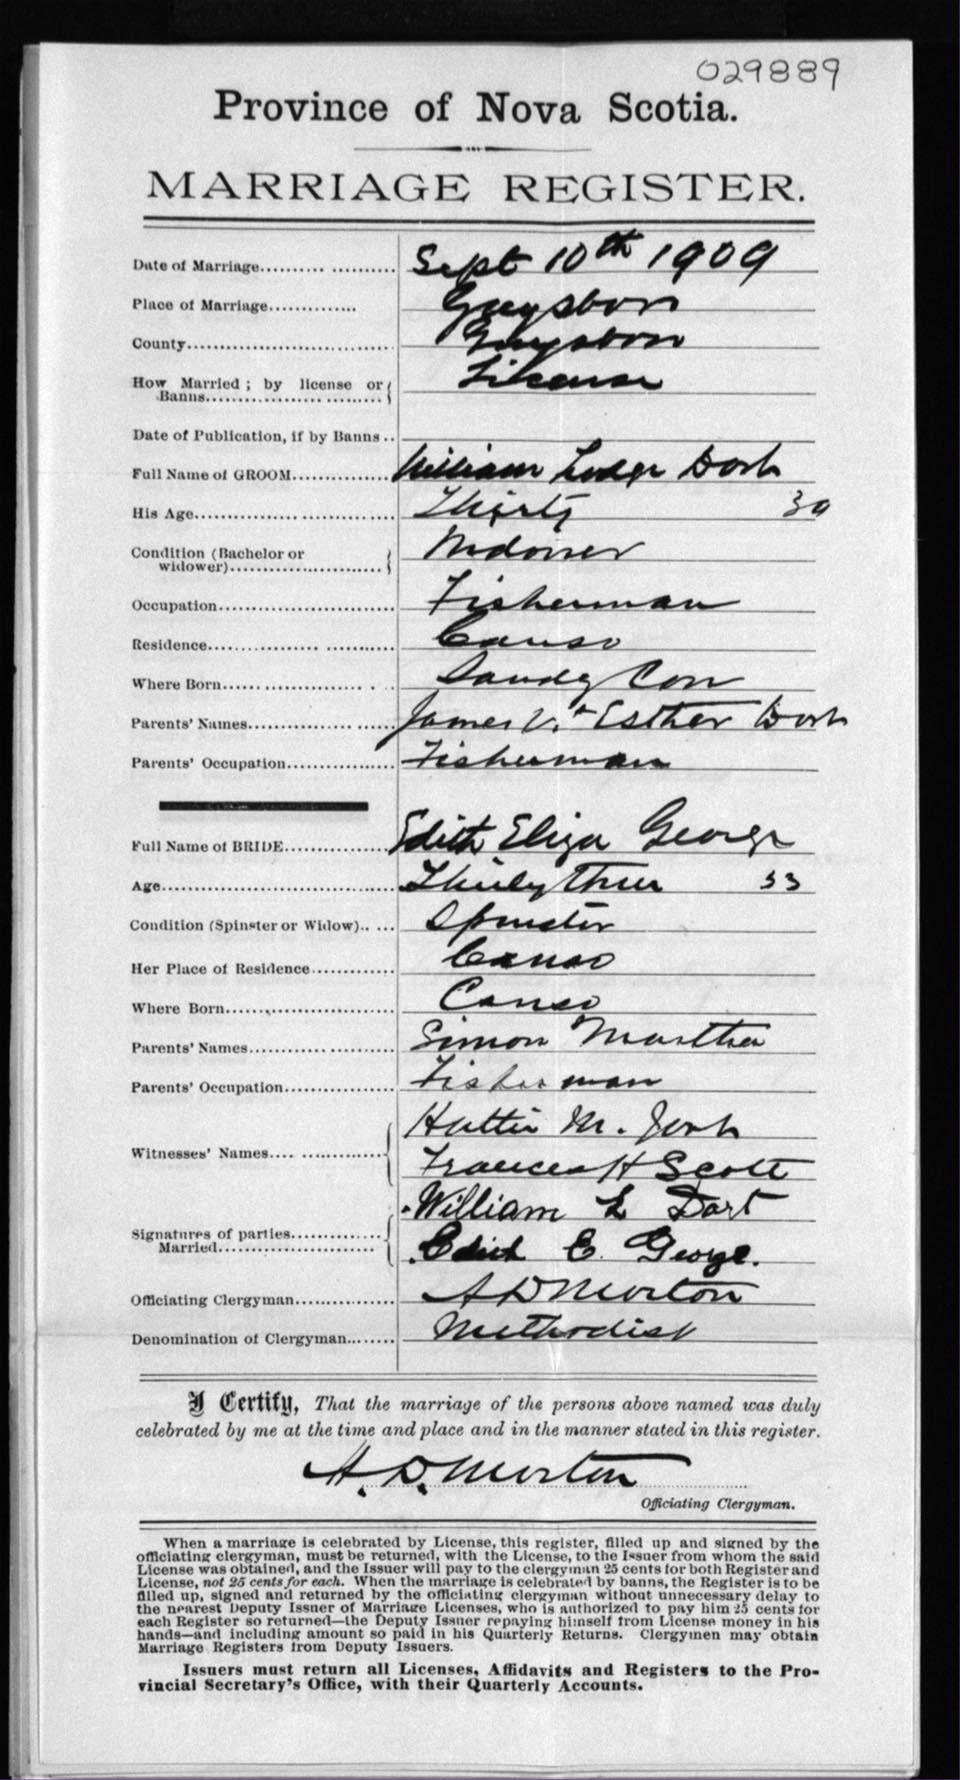 029889
Province of Nova Scotia.
MARRIAGE REGISTER.
Date of Marriage.......... ........... Sept 10th 1909
Place of Marriage.............. Guysboro
County................................ Guysboro
How Married ; by license or License
Banns...........................
Date of Publication, if by Banns ..
Full Name of GROOM................ William Lodge Dort
His Age............................... Thirty 30
Condition (Bachelor or Widower
widower)..........................
Occupation........................... Fisherman
Residence................. ........... Canso
Where Born...................... . . Sandy Cove
Parents' Names................. ..... James V. + Esther Dort
Parents' Occupation................. Fisherman
Full Name of BRIDE................. Edith Eliza George
Age.................................... Thirty Three 33
Condition (Spinster or Widow).. ... Spinster
Her Place of Residence............. Canso
Where Born.......................... Canso
Parents' Names...................... Simon Martha
Parents' Occupation................. Fisherman
Hattie M.
Witnesses' Names.... ............. Frances H Scott
William L Dort
Signatures of parties..............
Married......................... Edith E. George.
Officiating Clergyman................ A D Morton
Denomination of Clergyman........ Methodist
I Certify, That the marriage of the persons above named was duly
celebrated by me at the time and place and in the manner stated in this register.
A. D. Morton
Officiating Clergyman.
When a marriage is celebrated by License, this register, filled up and signed by the
officiating clergyman, must be returned, with the License, to the Issuer from whom the said
License was obtained, and the Issuer will pay to the clergyman 25 cents for both Register and
License, not 25 cents for each. When the marriage is celebrated by banns, the Register is to be
filled up, signed and returned by the officiating clergyman without unnecessary delay to
the nearest Deputy Issuer of Marriage Licenses, who is authorized to pay him 25 cents for
each Register so returned—the Deputy Issuer repaying himself from License money in his
hands—and including amount so paid in his Quarterly Returns. Clergymen may obtain
Marriage Registers from Deputy Issuers.
Issuers must return all Licenses, Affidavits and Registers to the Pro-
vincial Secretary's Office, with their Quarterly Accounts.